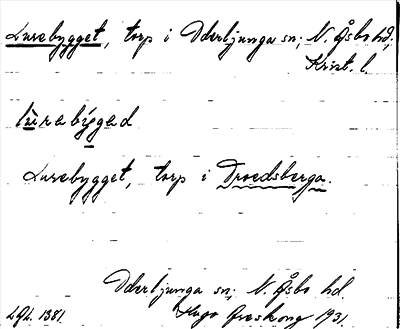 Lurebygget, torp i Oderljunga sn; N. Åsbo hd,
Krist. l.
lùrebýgəd
Lurebygget, torp i Troedsberga.
Oderljunga sn; N. Åsbo hd.
LGL. 1381. Hugo Areskoug 1931